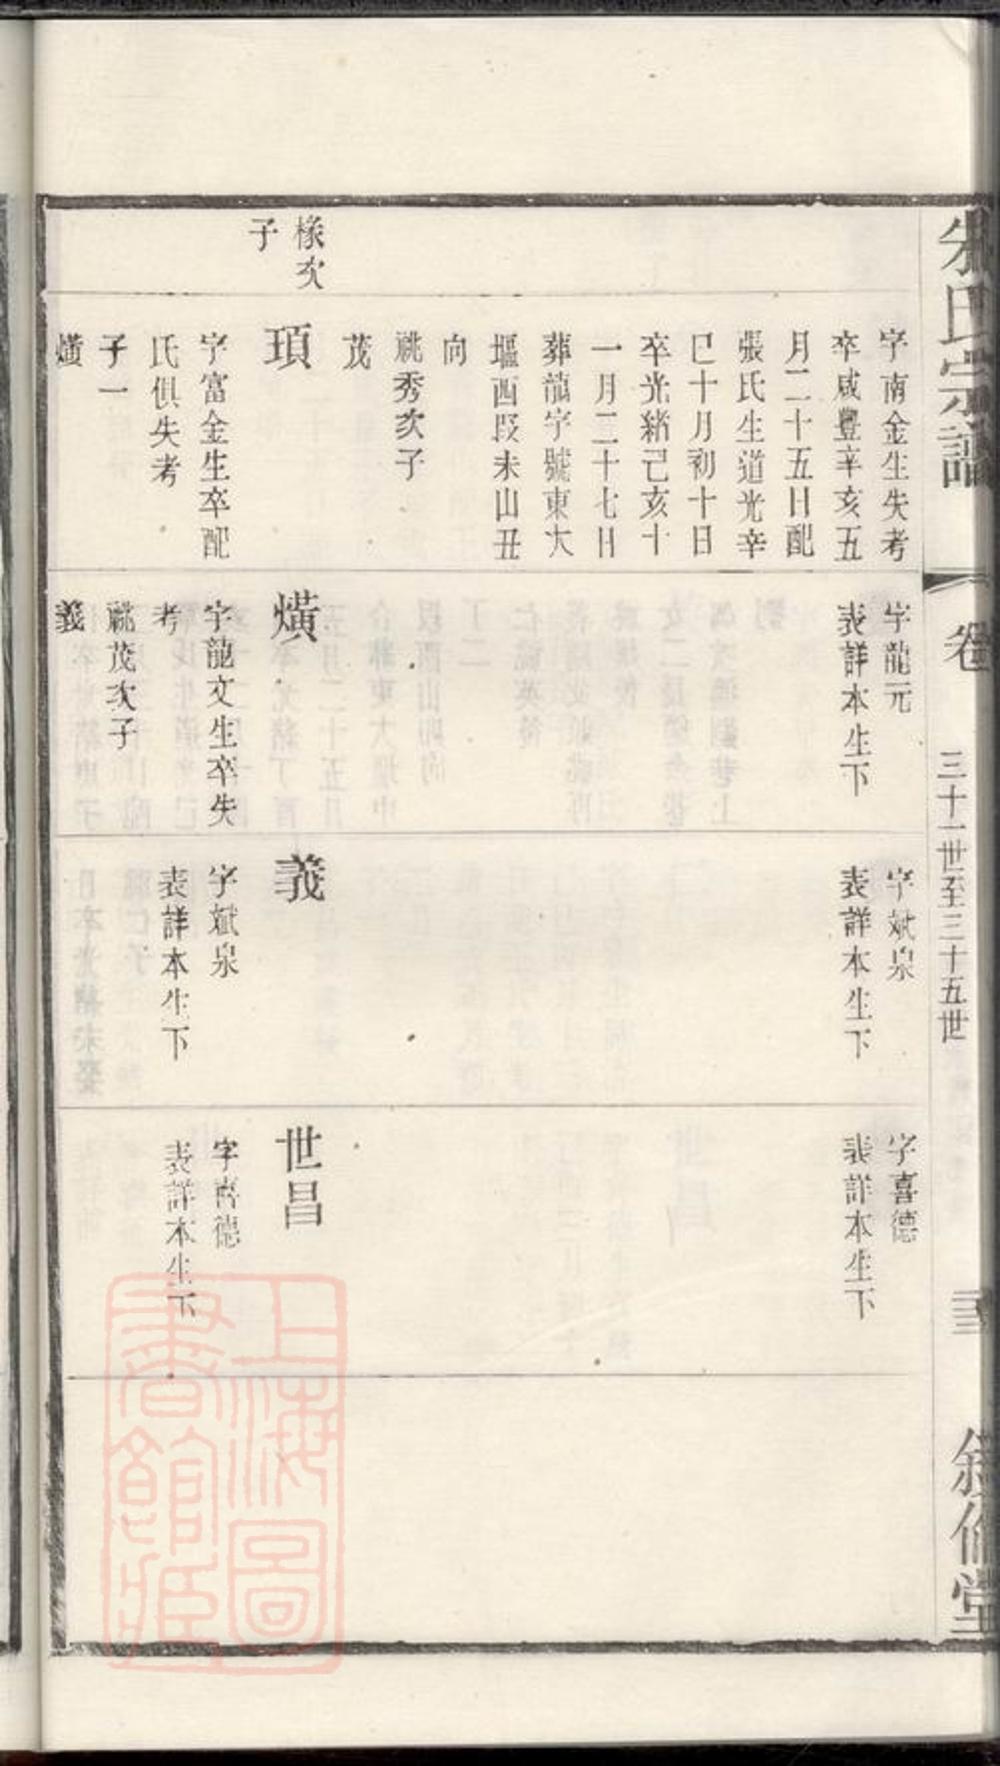 朱氏宗譜
卷
三十一世至三十五世
三
敘倫堂
字南金生失考
卒咸豐辛亥五
月二十五日配
張氏生道光辛
巳十月初十日
卒光緒己亥十
一月二十七日
葬龍字號東大
堰西段未山丑
向
祧秀次子
茂
字龍元
表詳本生下
字斌泉
表詳本生下
字喜德
表詳本生下
椽次
子
頊
字富金生卒配
氏俱失考
子一
熿
熿
字龍文生卒失
考
祧茂次子
義
義
字斌泉
表詳本生下
世昌
字喜德
表詳本生下
上海圖
書館藏